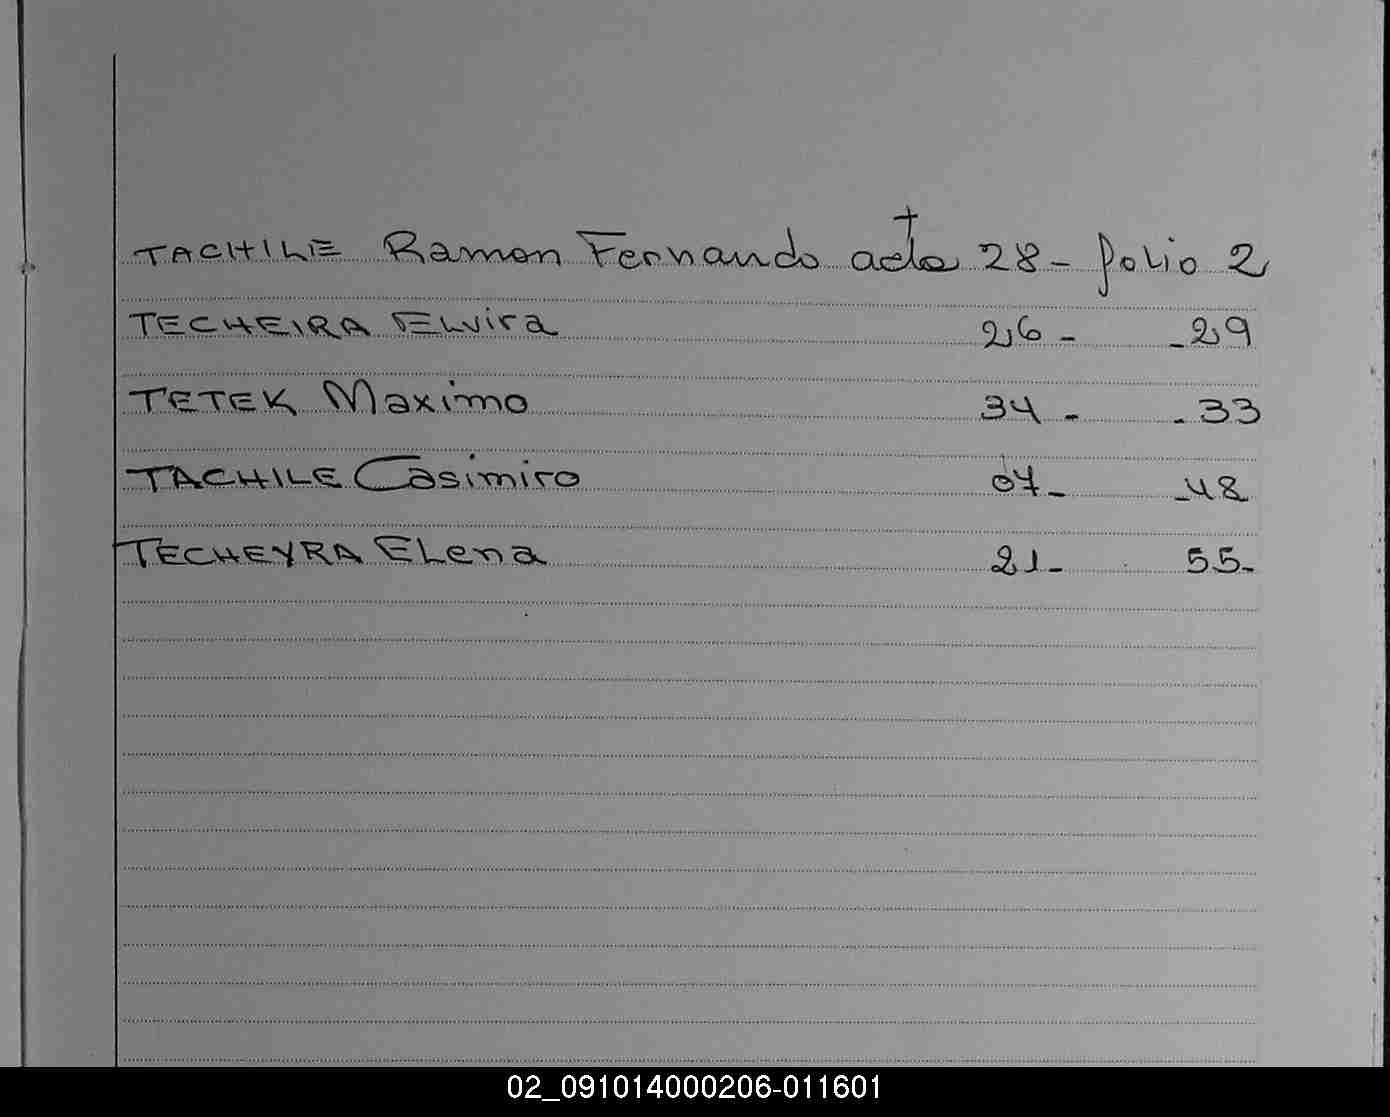 TACHILE Ramon Fernando acta 28 - folio 2
TECHEIRA Elvira 26 - - 29
TETEK Maximo 34 - - 33
TACHILE Casimiro 07 - - 48
TECHEYRA Elena 21 - 55 -
02_091014000206-011601